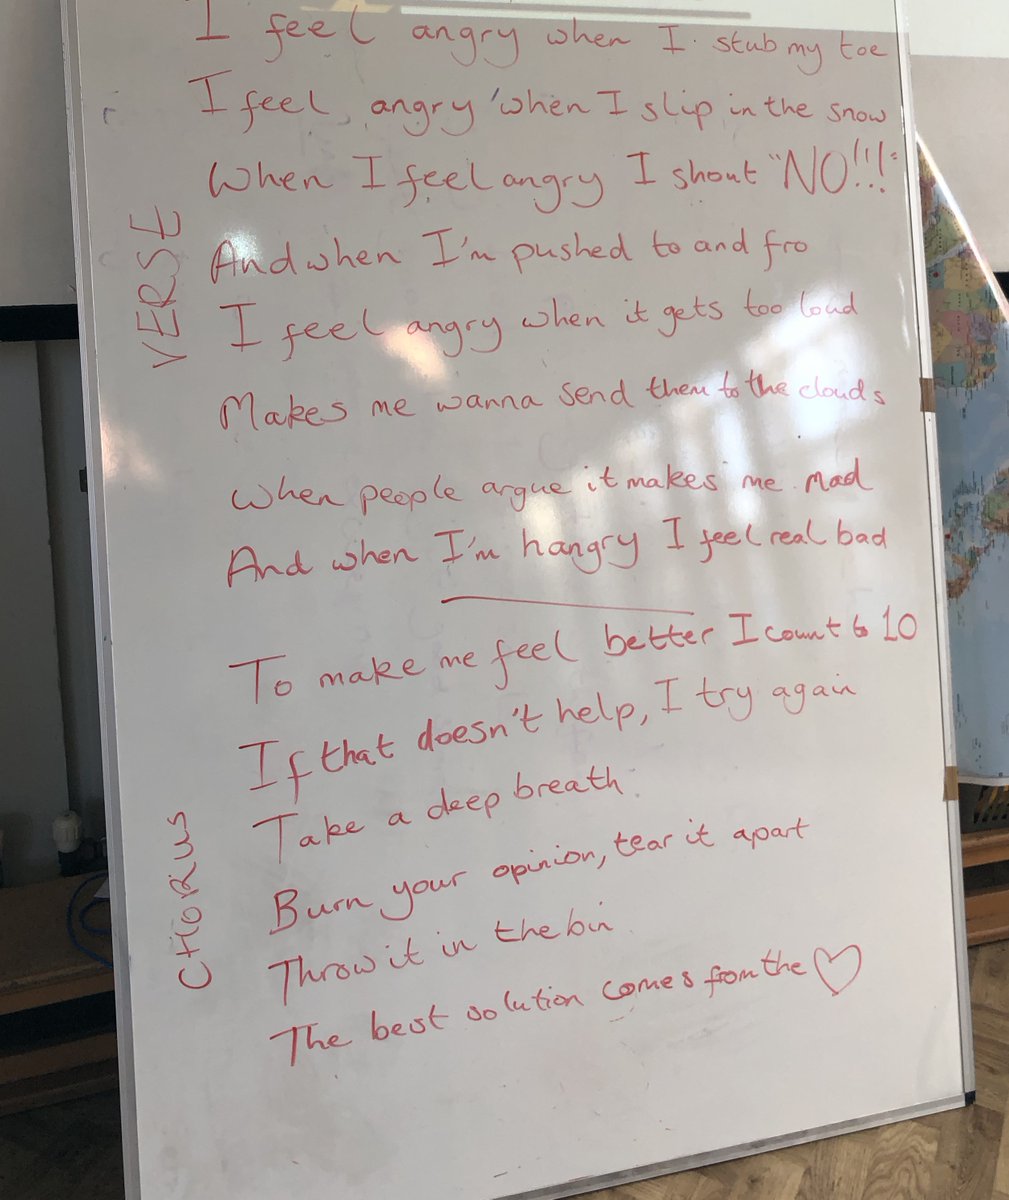 I feel angry when I stub my toe
I feel angry when I slip in the snow
When I feel angry I shout "NO!!!"
And when I'm pushed to and fro
I feel angry when it gets too loud
Makes me wanna send them to the clouds
When people argue it makes me mad
And when I'm hangry I feel real bad
VERSE
To make me feel better I count to 10
If that doesn't help, I try again
Take a deep breath
Burn your opinion, tear it apart
Throw it in the bin
The best solution comes from the ♡
CHORUS